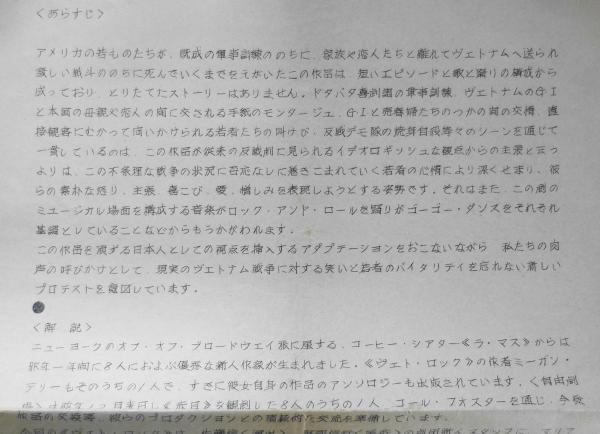 〈あらすじ〉
アメリカの若ものたちが、既成の軍事訓練ののちに、家族や恋人たちと離れてヴェトナムへ送られ
激しい戦斗ののちに死んでいくまでをえがいたこの作品は、短いエピソードと歌と踊りの構成から
成っており、とりたてたストーリーはありません。ドタバタ喜劇風の軍事訓練、ヴェトナムのGI
と本国の母親や恋人の間に交される手紙のモンタージュ、GIと売春婦たちのつかの間の交情、直
接観客にむかって問いかけられる若者たちの叫び、反戦デモ隊の焼身自殺等々のシーンを通じて
一貫しているのは、この作品が従来の反戦劇に見られるイデオロギッシュな観点からの主張と云う
よりは、この不条理な戦争の状況に否応なしに巻きこまれていく若者の心情により深くせまり、彼
らの素朴な怒り、主張、傷こび、愛、憎しみを表現しようとする姿勢です。それはまた、この劇の
ミュージカル場面を構成する音楽がロック・アンド・ロールを踊りがゴーゴー・ダンスをそれぞれ
基調としていることなどからもうかがわれます。
この作品を演ずる日本人としての視点を挿入するアダプテーションをおこないながら 私たちの肉
声の呼びかけとして、現実のヴェトナム戦争に対する笑いと若者のバイタリティを忘れない新しい
プロテストを意図しています。
〈解 説〉
ニューヨークのオフ・オフ・ブロードウェイ派に属する、コーヒー・シアター《ラ・ママ》からは
昨年一年間に8人におよぶ優秀な新人作家が生まれました。《ヴェト・ロック》の作者ミーガン・
テリーもそのうちの1人で、すでに彼女自身の作品のアンソロジーも出版されています。《自由劇
を観劇した8人のうちの1人、コール・フォスターを通じ、今後
作品の交換等、彼らのプロダクションとの積極的な交流を準備しています。